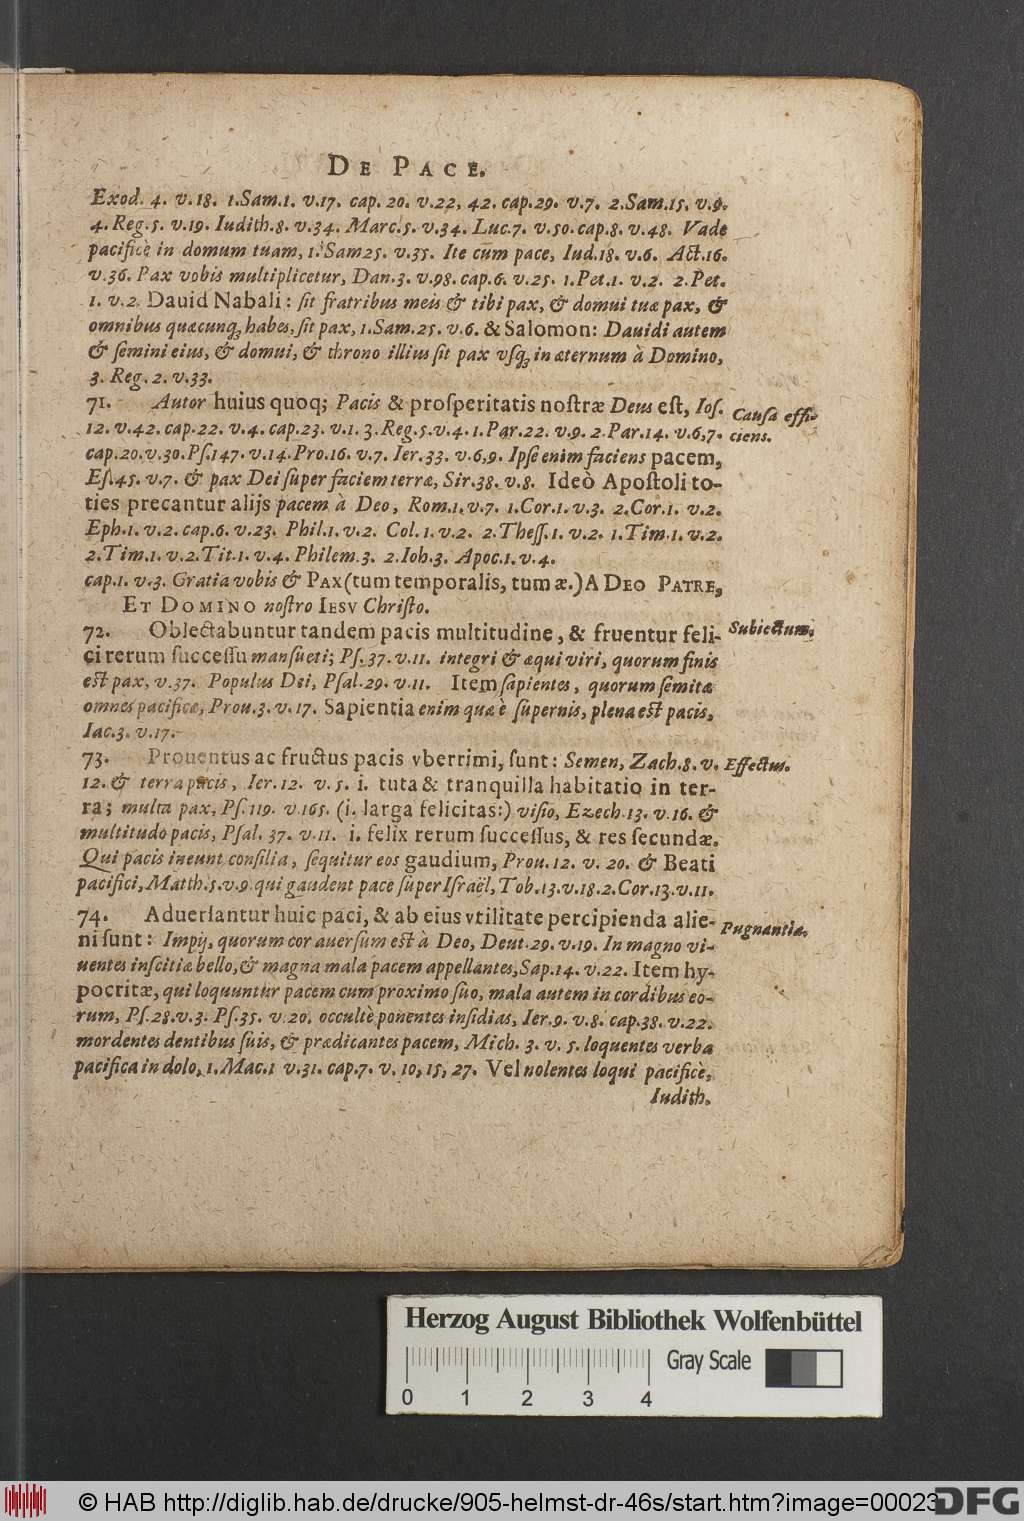 DE PACE.
Exod. 4. v.18. 1.Sam.1. v.17. cap. 20. v.22, 42. cap.29. v.7. 2.Sam.15. v.9.
4.Reg.5. v.19. Iudith.8. v.34. Marc.5. v.34. Luc.7. v.50.cap.8. v.48. Vade
pacificè in domum tuam, 1.Sam25. v.35. Ite cum pace, Iud.18. v.6. Act.16.
v.36. Pax vobis multiplicetur, Dan.3. v.98. cap.6. v.25. 1.Pet.1. v.2. 2.Pet.
1. v.2. Dauid Nabali: ſit fratribus meis & tibi pax, & domui tuæ pax, &
omnibus quæcunq; habes, ſit pax, 1.Sam.25. v.6. & Salomon: Dauidi autem
& ſemini eius, & domui, & throno illius ſit pax vſq; in æternum à Domino,
3. Reg. 2. v.33.
71. Autor huius quoq; Pacis & proſperitatis noſtræ Deus eſt, Ioſ.
Cauſa effi-
12. v.42. cap.22. v.4. cap.23. v.1. 3.Reg.5.v.4.1.Par.22. v.9. 2.Par.14. v.6,7.
ciens.
cap.20.v.30.Pſ.147.v.14.Pro.16. v.7. Ier.33. v.6,9. Ipſe enim faciens pacem,
Eſ.45. v.7. & pax Dei ſuper faciem terræ, Sir.38. v.8. Ideò Apoſtoli to-
ties precantur alijs pacem à Deo, Rom.1.v.7. 1.Cor.1.v.3. 2.Cor.1. v.2.
Eph.1. v.2. cap.6. v.23. Phil.1. v.2. Col.1. v.2. 2.Theſſ.1. v.2. 1.Tim.1. v.2.
2.Tim.1. v.2.Tit.1. v.4. Philem.3. 2.Ioh.3. Apoc.1. v.4.
cap.1. v.3. Gratia vobis & PAX (tum temporalis, tum æ.) A DEO PATRE,
ET DOMINO noſtro IESV Chriſto.
72. Oblectabuntur tandem pacis multitudine, & fruentur feli-
Subiectum.
ci rerum ſucceſſu manſueti; Pſ.37. v.11. integri & æqui viri, quorum finis
est pax, v.37. Populus Dei, Pſal.29. v.11. Item ſapientes, quorum ſemitæ
omnes pacificæ, Prou.3. v.17. Sapientia enim quæ è ſupernis, plena est pacis,
Iac.3. v.17.
73. Prouentus ac fructus pacis vberrimi, ſunt: Semen, Zach.8. v.
Effectus.
12. & terra pacis, Ier.12. v.5. i. tuta & tranquilla habitatio in ter-
ra; multa pax, Pſ.119. v.165. (i. larga felicitas:) viſio, Ezech.13. v.16. &
multitudo pacis, Pſal. 37. v.11. i. felix rerum ſucceſſus, & res ſecundæ.
Qui pacis ineunt conſilia, ſequitur eos gaudium, Prou. 12. v. 20. & Beati
pacifici, Matth.5.v.9. qui gaudent pace ſuper Iſraël, Tob.13.v.18.2.Cor.13.v.11.
74. Aduerſantur huic paci, & ab eius vtilitate percipienda alie-
Pugnantia.
ni ſunt: Impij, quorum cor auerſum est à Deo, Deut.29. v.19. In magno vi-
uentes inſcitiæ bello, & magna mala pacem appellantes, Sap.14. v.22. Item hy-
pocritæ, qui loquuntur pacem cum proximo ſuo, mala autem in cordibus eo-
rum, Pſ.28.v.3. Pſ.35. v.20. occultè ponentes inſidias, Ier.9. v.8. cap.38. v.22.
mordentes dentibus ſuis, & prædicantes pacem, Mich. 3. v. 5. loquentes verba
pacifica in dolo, 1.Mac.1 v.31. cap.7. v. 10, 15, 27. Vel nolentes loqui pacificè,
Iudith.
Herzog August Bibliothek Wolfenbüttel
Gray Scale
0 1 2 3 4
© HAB http://diglib.hab.de/drucke/905-helmst-dr-46s/start.htm?image=00023
DFG